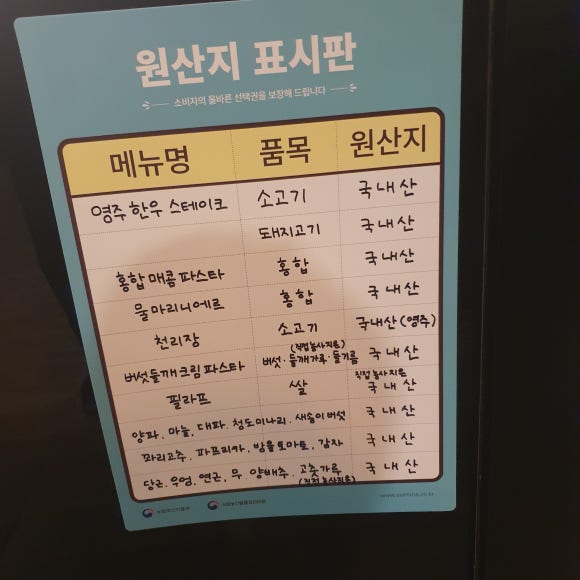 원산지 표시판
소비자의 올바른 선택권을 보장해 드립니다
메뉴명 품목 원산지
영주 한우 스테이크 소고기 국내산
돼지고기 국내산
홍합 매콤 파스타 홍합 국내산
물마리니에르 홍합 국내산
천리장 소고기 국내산 (영주)
버섯들깨크림 파스타 버섯 · 들깨가루 · 들기름 (직접 농사 지음) 국내산
필라프 쌀 직접 농사 지음 국내산
양파, 마늘, 대파, 청도미나리, 새송이버섯 국내산
꽈리고추, 파프리카, 방울토마토, 감자 국내산
당근, 우엉, 연근, 무, 양배추, 고춧가루 (직접 농사지음) 국내산
농림축산식품부 국립농산물품질관리원